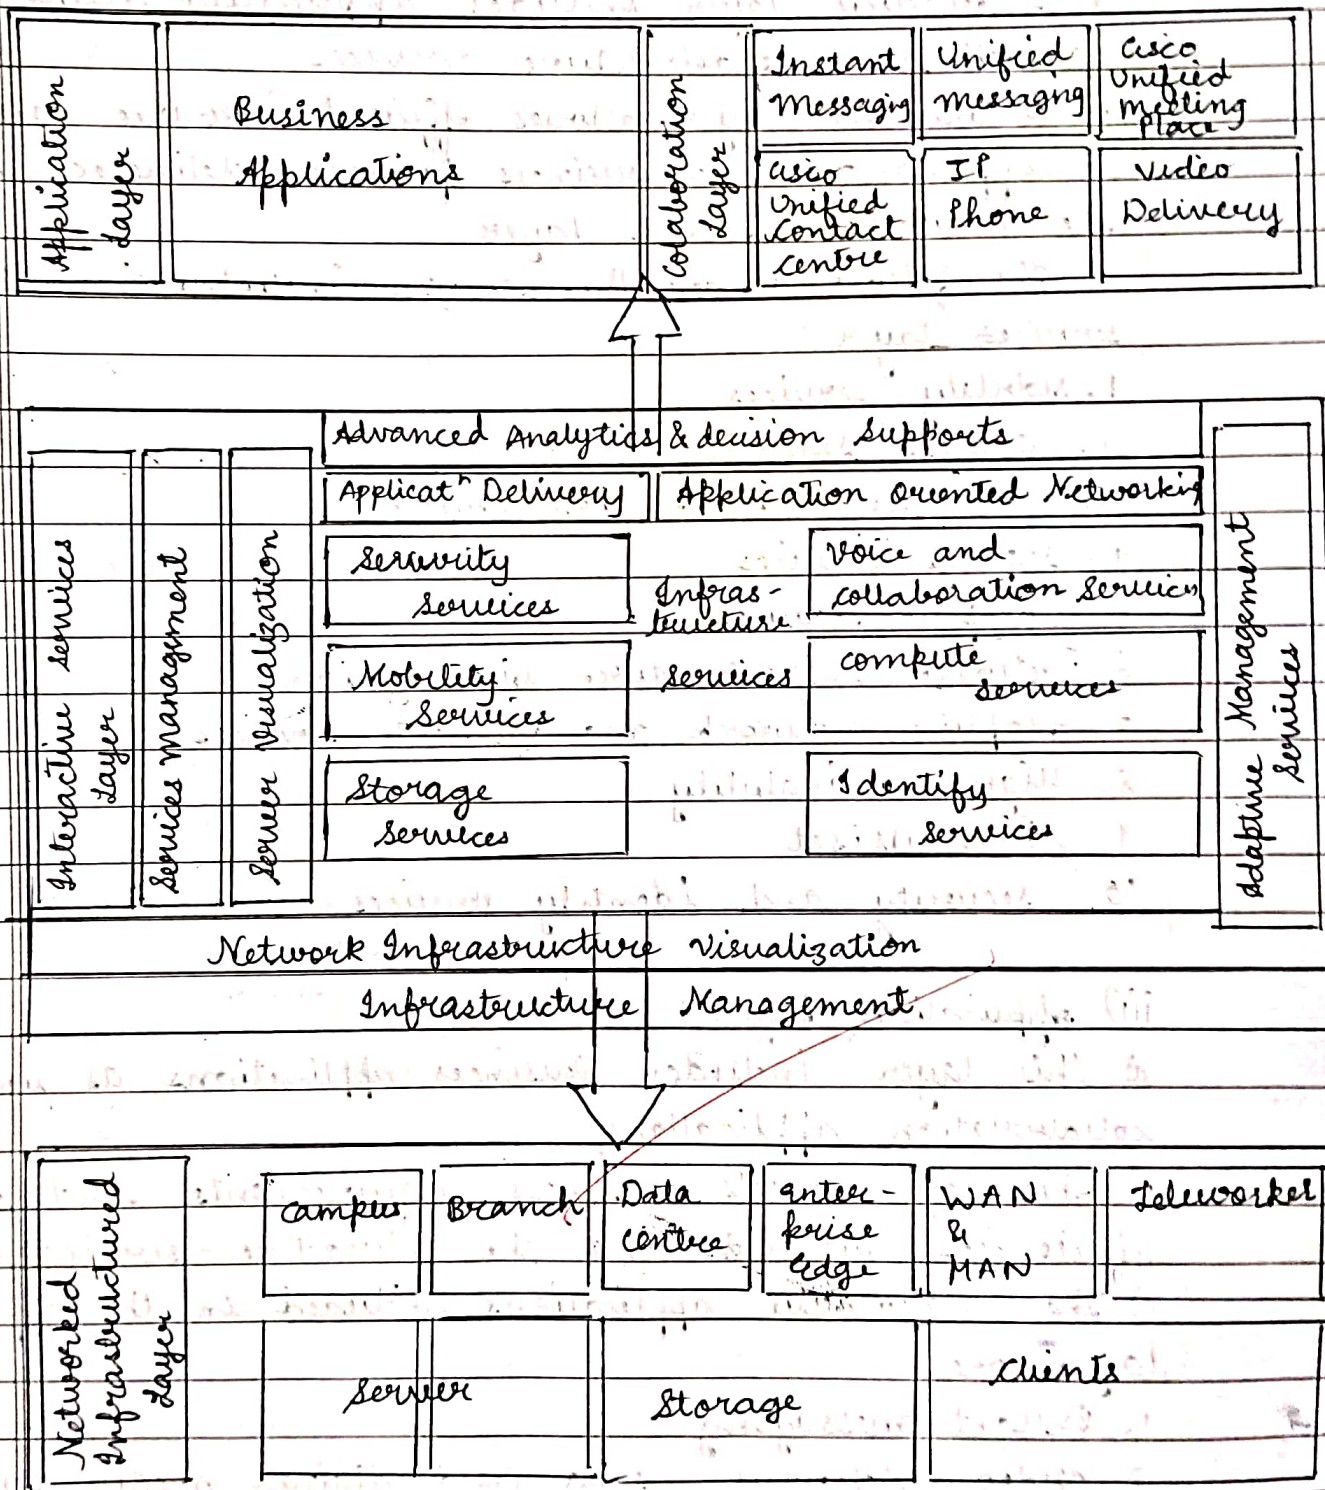 Application
Layer
Business
Applications
Colaboration
Layer
Instant
Messaging
Unified
messaging
Cisco
Unified
Meeting
Place
Cisco
Unified
Contact
Centre
IP
Phone
Video
Delivery
Advanced Analytics & decision Supports
Applicatⁿ Delivery
Application Oriented Networking
Interactive Services
Layer
Services Management
Server Visualization
Security
Services
Infras-
tructure
Services
Voice and
collaboration Services
Mobility
Services
compute
services
Storage
Services
Identify
Services
Adaptive Management
Services
Network Infrastructure Visualization
Infrastructure Management
Networked
Infrastructured
Layer
Campus
Branch
Data
Centre
Enter-
prise
Edge
WAN
&
MAN
Teleworker
Server
Storage
Clients